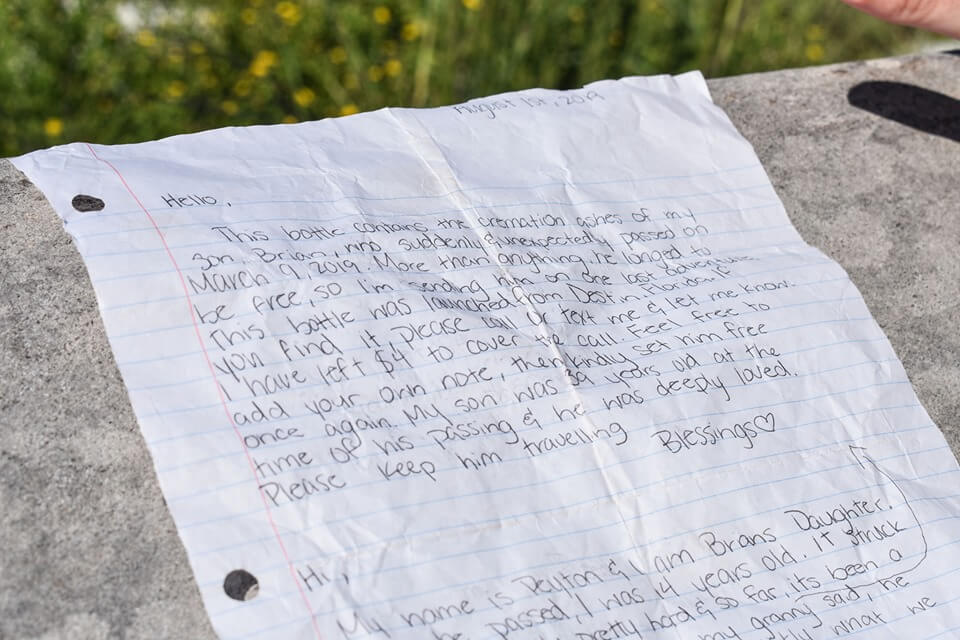 August 1st, 2019
Hello,
This bottle contains the cremation ashes of my
son, Brian, who suddenly & unexpectedly passed on
March 9, 2019. More than anything, he longed to
be free, so I'm sending him on one last adventure.
This bottle was launched from Destin, Florida. If
you find it, please call or text me & let me know.
I have left $4 to cover the call. Feel free to
add your own note, then kindly set him free
once again. My son was 39 years old at the
time of his passing & he was deeply loved.
Please keep him travelling Blessings♡
Hi,
My name is Peyton & I am Brians Daughter.
he passed, I was 14 years old. It struck
pretty hard & so far, its been a
my granny said, he
what we